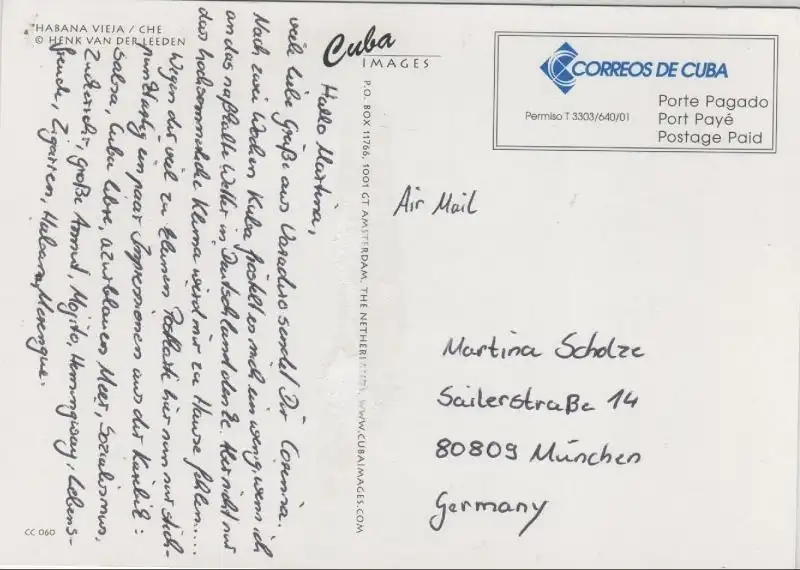 HABANA VIEJA / CHE
© HENK VAN DER LEEDEN
Cuba
IMAGES
P.O. BOX 11766, 1001 GT AMSTERDAM, THE NETHERLANDS, WWW.CUBAIMAGES.COM
CC 060
Hallo Martina,
viele liebe Grüße aus Varadero sendet Dir Cosmia.
Nach zwei Wochen Kuba fröstelt es mich ein wenig, wenn ich
an das naßkalte Wetter in Deutschland denke. Aber nicht nur
das hochsommerliche Klima wird mir zu Hause fehlen....
Wegen der viel zu kleinen Postkarte hier nun nur stich-
punktartig ein paar Impressionen aus der Karibik:
Salsa, Cuba libre, azurblaues Meer, Sozialismus,
Zuckerrohr, große Armut, Mojito, Hemingway, Lebens-
freude, Zigarren, Habana, Merengue.
CORREOS DE CUBA
Permiso T 3303/640/01
Porte Pagado
Port Payé
Postage Paid
Air Mail
Martina Scholze
Sailerstraße 14
80809 München
Germany